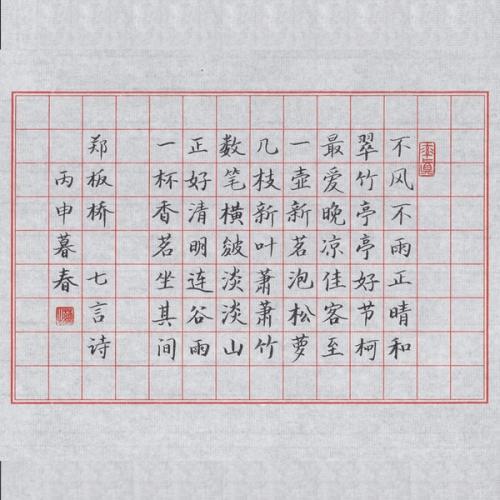 不风不雨正晴和
翠竹亭亭好节柯
最爱晚凉佳客至
一壶新茗泡松萝
几枝新叶萧萧竹
数笔横皴淡淡山
正好清明连谷雨
一杯香茗坐其间
郑板桥 七言诗
丙申暮春